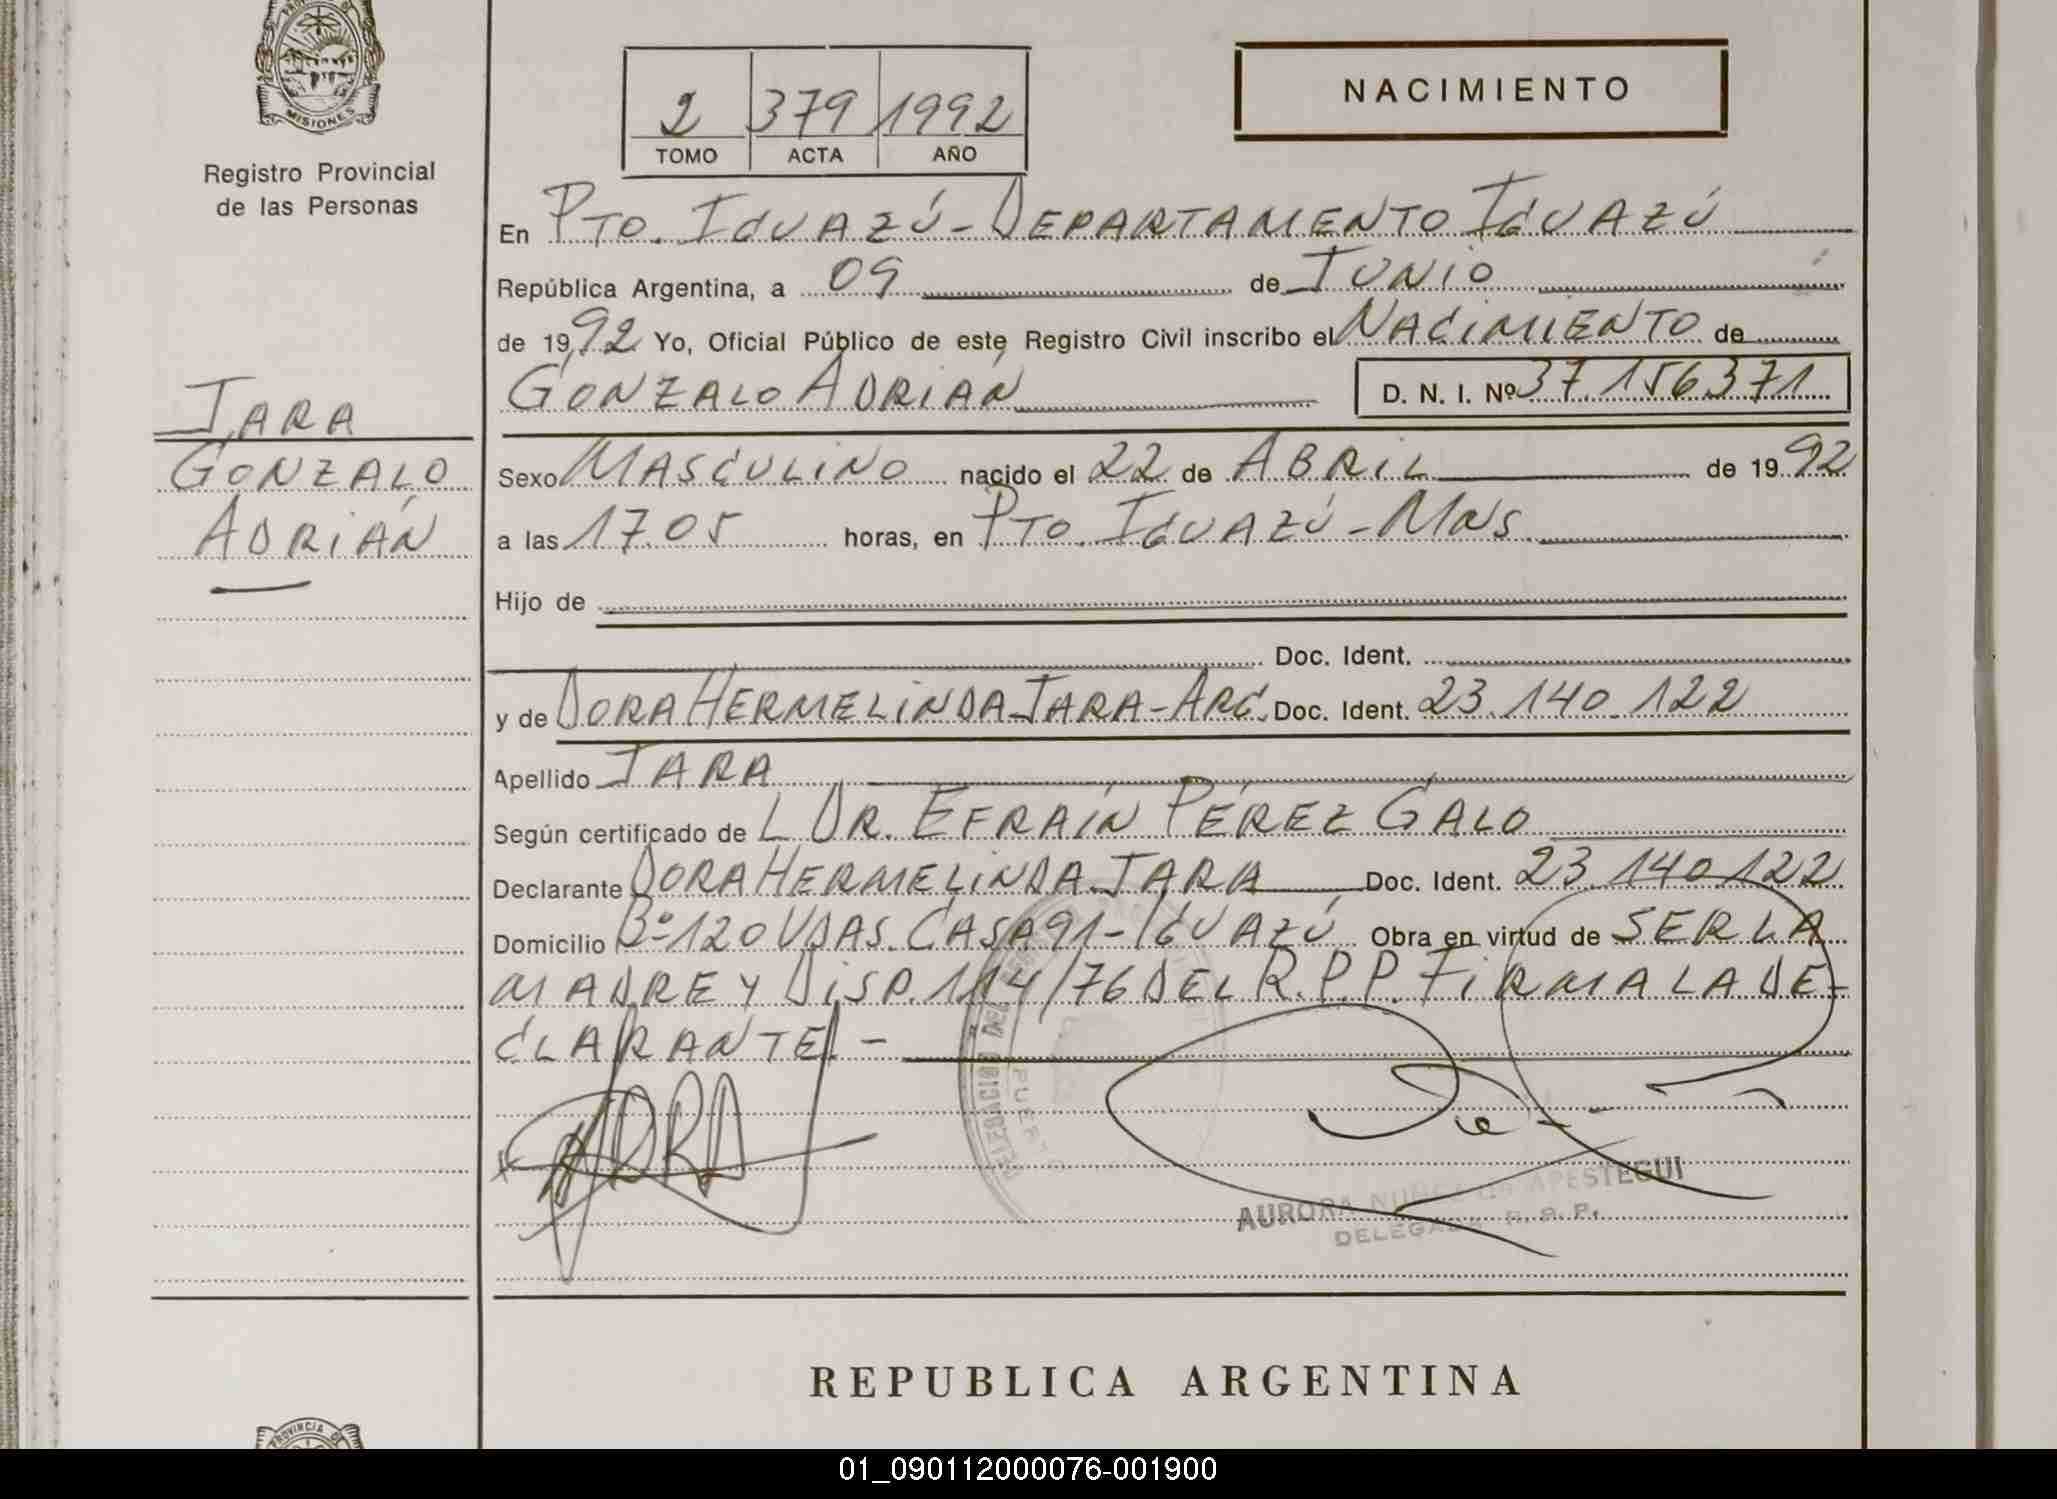 MISIONES
Registro Provincial
de las Personas
JARA
GONZALO
ADRIÁN
2 379 1992
TOMO ACTA AÑO
NACIMIENTO
En PTO. IGUAZÚ - DEPARTAMENTO IGUAZÚ
República Argentina, a 09 de JUNIO
de 1992 Yo, Oficial Público de este Registro Civil inscribo el NACIMIENTO de
GONZALO ADRIÁN D. N. I. Nº 37.156371
Sexo MASCULINO nacido el 22 de ABRIL de 1992
a las 17.05 horas, en PTO. IGUAZÚ - MNS
Hijo de
Doc. Ident.
y de DORA HERMELINDA JARA - ARG. Doc. Ident. 23.140.122
Apellido JARA
Según certificado de L DR. EFRAÍN PÉREZ GALO
Declarante DORA HERMELINDA JARA Doc. Ident. 23.140.122
Domicilio Bº 120 VDAS. CASA 91 - IGUAZÚ Obra en virtud de SER LA
MADRE Y DISP. 114/76 DEL R.P.P. FIRMA LA DE-
CLARANTE -
JARA
DELEGACION DEL
PUERTO
AURORA NUÑEZ DE APESTEGUI
DELEGADA R. P. P.
REPUBLICA ARGENTINA
PROVINCIA DE
01_090112000076-001900